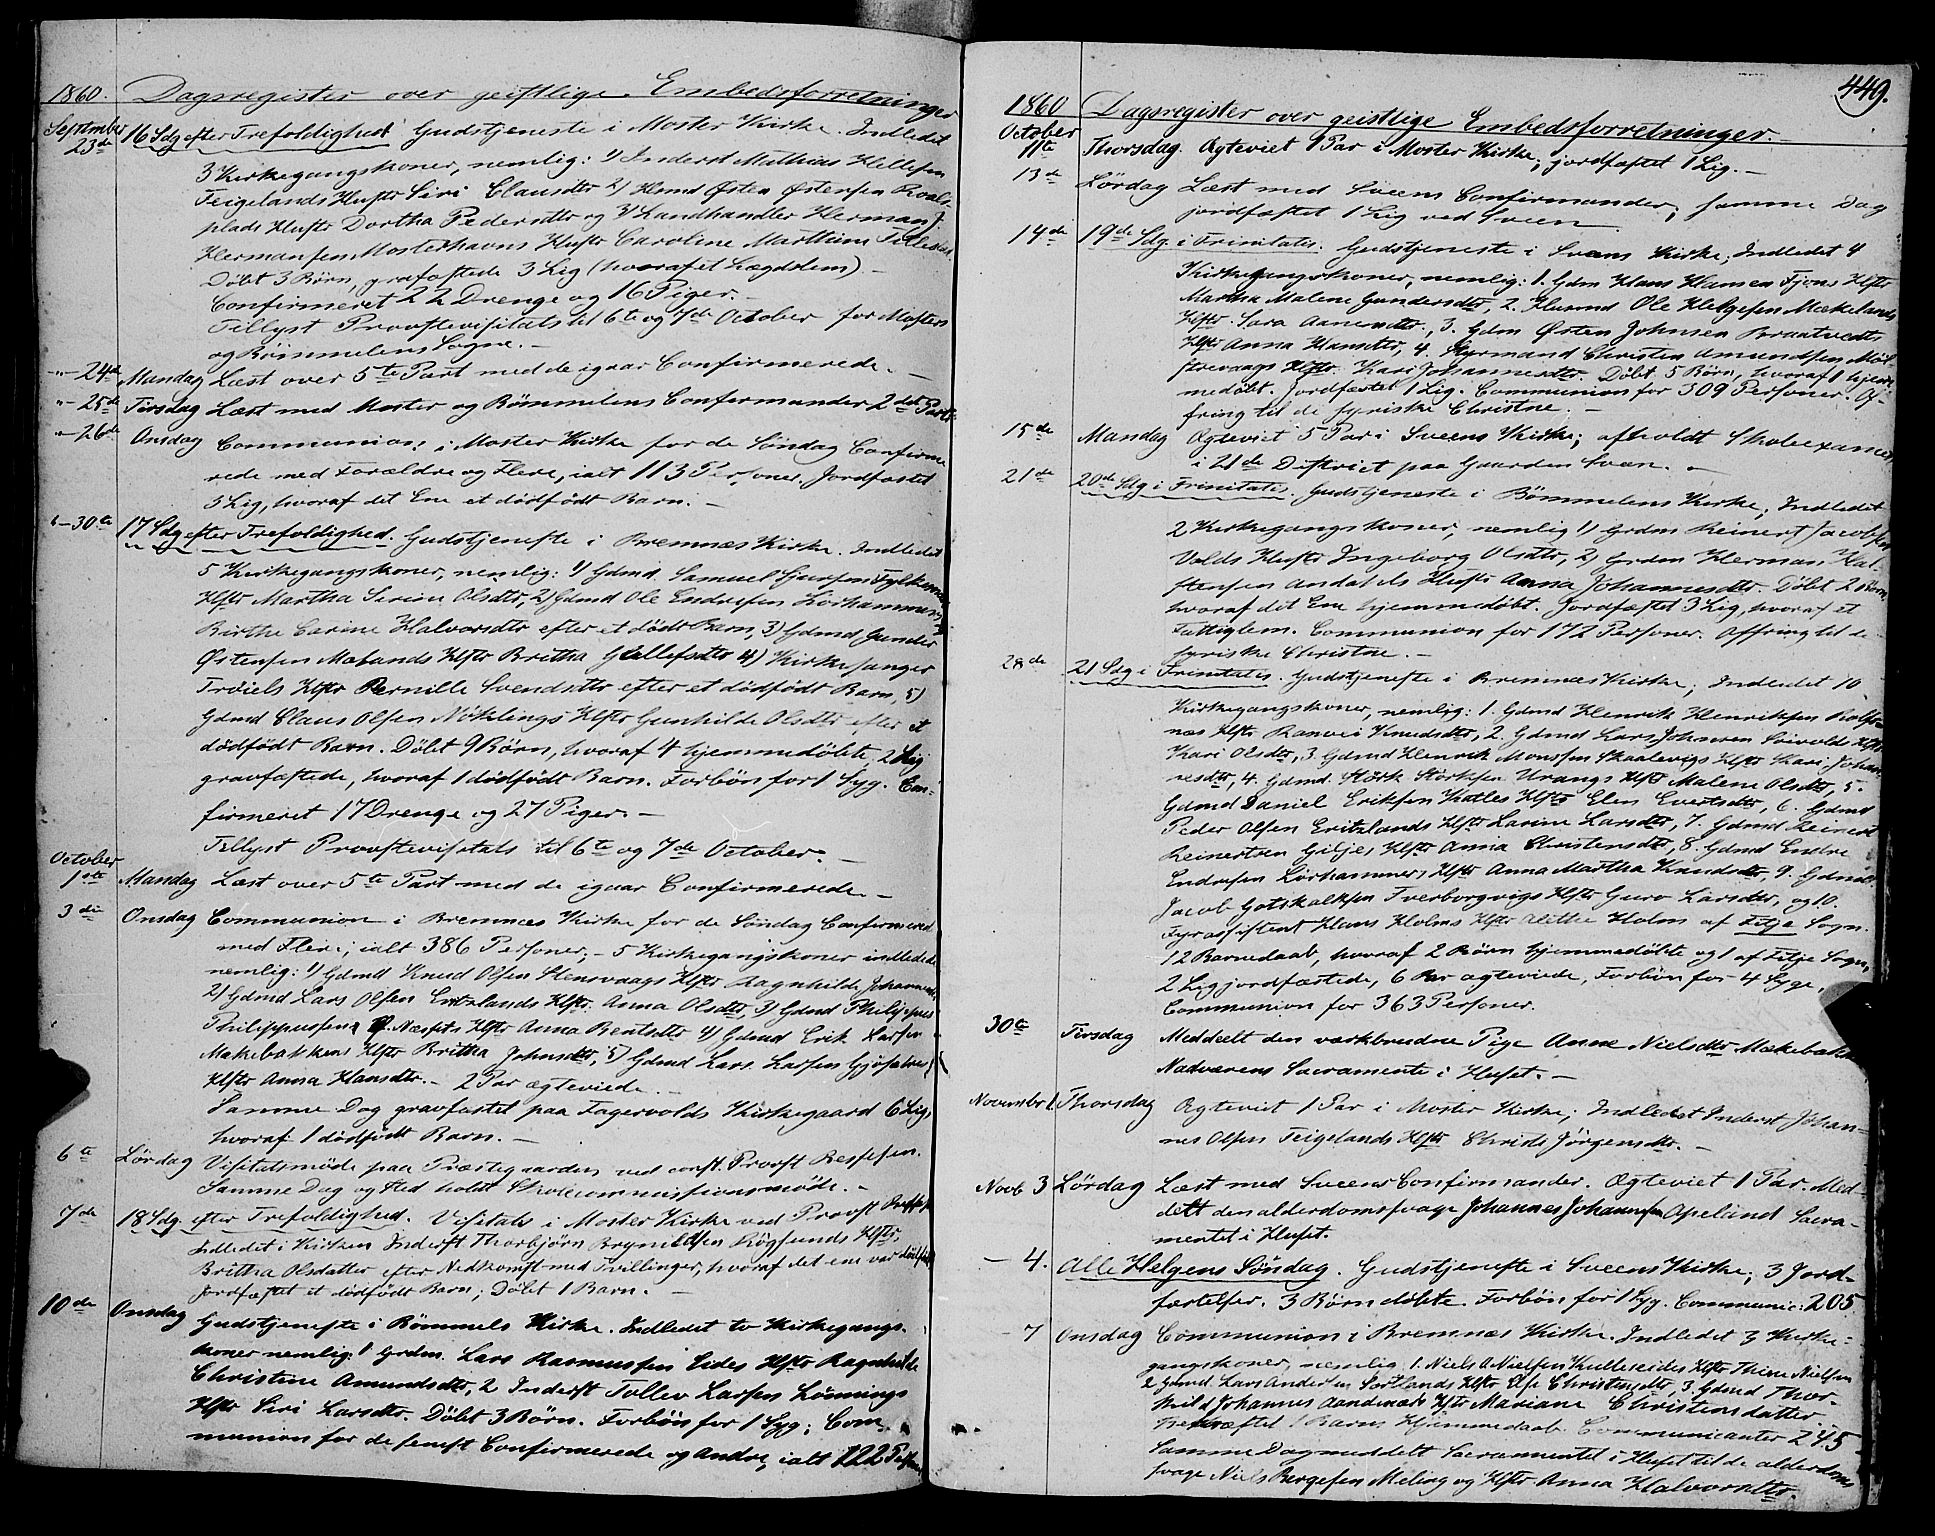 1860. Dagsregister over geistlige Embedsforretninger
September
23de 16 Sdg efter Trefoldighed Gudstjeneste i Moster Kirke. Indledet
3 Kirkegangskoner, nemlig: 1) Inderst Mathias Hellesen
Feigelands Hustr Siri Clausdtr 2) Husmd Østen Østensen Roals-
plads Hustr Dortha Pedersdtr og 3) Landhandler Herman J.
Hermansen Mosterhavns Hustr Caroline Marthine
Døbt 3 Börn, grafæstede 3 Lig (hvoraf et Lægdslem) –
Confirmeret 22 Drenge og 16 Piger. –
Tillyst Provstevisitats til 6te og 7de October for Mosters
og Bömmelens Sogne. –
"– 24de Mandag Læst over 5te Part med de igaar Confirmerede. –
"– 25de Tirsdag Læst med Moster og Bömmelens Confirmander 2det Parti
"– 26de Onsdag Communion i Moster Kirke for de Söndag Confirme
rede med Forældre og Flere, ialt 113 Personer. Jordfæstet
3 Lig, hvoraf det Ene et dödfödt Barn. –
"– 30te 17 Sdg efter Trefoldighed. Gudstjeneste i Bremnæs Kirke. Indledet
5 Kirkegangskoner, nemlig: 1) Gdmd. Samuel Sjursen
Hstr Martha Serine Olsdtr, 2) Gdmd Ole Endresen Lörhammers
Birthe Carine Halvorsdtr efter et dödt Barn, 3) Gdmd Gunder
Østensen Mælands Hstr Britha Gullefsdtr 4) Kirkesanger
Tröiels Hstr Pernille Svendsdtr efter et dödfödt Barn, 5)
Gdmd Claus Olsen Nöklings Hstr Gunhilde Olsdtr efter et
dödfödt Barn. Döbt 9 Börn, hvoraf 4 hjemmedöbte, 2 Lig
gravfæstede, hvoraf 1 dödfödt Barn. Forbön for 1 Syg. Con-
firmeret 17 Drenge og 27 Piger. –
Tillyst Provstevisitats til 6te og 7de October. –
October
1ste Mandag Læst over 5te Part med de igaar Confirmerede –
3die Onsdag Communion i Bremnæs Kirke for de Söndag Confirmered
med Flere; ialt 386 Personer; – 5 Kirkegangskoner indledede
nemlig: 1) Gdmd Knud Olsen Stensvaags Hstr Ragnhilde
2) Gdmd Lars Olsen Eritzlands Hstr. Anna Olsdtr, 3) Gdmd Philippus
Philippussen Næsets Hstr Anna Bentsdtr 4) Gdmd Erik Larsen
Mækebakkens Hstr Britha Johnsdtr, 5) Gdmd Lars Larsen
Hstr Anna Hansdtr. – 2 Par ægteviede. –
Samme Dag gravfæstet paa Fagervolds Kirkegaard 6 Lig,
hvoraf 1 dödfödt Barn. –
6te Lördag Visitatsmöde paa Præstegaarden ved const. Provst
Samme Dag og Sted holdt Skolecommissionsmöde. –
7de 18 Sdg. efter Trefoldighed. Visitats i Moster Kirke ved Provst
Indledet i Kirken Inderst Thorbjörn Brynildsen Rögsunds Hstr
Britha Olsdatter efter Nedkomst med Tvillinger, hvoraf det ene var
Jordfæstet et dödfödt Barn; Döbt 1 Barn. –
10de Onsdag Gudstjeneste i Bömmels Kirke. Indledet to Kirkegangs-
koner nemlig 1 Grdm. Lars Rasmussen Eides Hstr Ragnhilde
Christine Amundsdtr, 2 Inderst Tollev Larsen Lönnings
Hstr Siri Larsdtr. Döbt 3 Börn. Forbön for 1 Syg; Com-
munion for de senest Confirmerede og Andre, ialt 122
449.
1860 Dagsregister over geistlige Embedsforretninger.
October
11te Thorsdag. Ægteviet 1 Par i Moster Kirke, jordfæstet 1 Lig. –
13de Lördag Læst med Sveens Confirmander, samme Dag
jordfæstet 1 Lig ved Sveen
14de 19de Sdg. i Trinitatis. Gudstjeneste i Sveens Kirke; Indledet 4
Kirkegangskoner, nemlig: 1. Gdm Hans Hansen Hstr
Martha Malene Gundersdtr, 2. Husmd Ole Helgesen Mækelands
Hstr Sara Aanensdtr, 3. Gdm Østen Johnsen Braatvedts
Hstr Anna Hansdtr, 4. Styrmand Christen Amundsen
Hstr. Kari Johannesdtr. Döbt 5 Börn, hvoraf 1 hjem-
medöbt. Jordfæstet 1 Lig. Communion for 309 Personer. Of-
fring til de syriske Christne. –
15de Mandag Ægteviet 5 Par i Sveens Kirke; afholdt Skoleexamen
i 21de District paa Gaarden Sveen. –
21de 20de Sdg i Trinitatis. Gudstjeneste i Bömmelens Kirke, Indledet
2 Kirkegangskoner, nemlig 1) Grdm Reinert Jacobsen
Volds Hustr Ingeborg Olsdtr, 2) Grdm Herman Hal-
stensen Andals Hustr Anna Johannesdtr. Döbt 2 Börn
hvoraf det Ene hjemmedöbt. Jordfæstet 3 Lig, hvoraf et
Fattiglem. Communion for 172 Personer. Offring til de
syriske Christne. –
28de 21 Sdg i Trinitatis. Gudstjeneste i Bremnes Kirke; Indledet 10
Kirkegangskoner, nemlig: 1. Gdmd Henrik Henriksen Rolfs-
næs Hstr Ranvei Knudsdtr, 2 Gdmd Lars Johnsen Hstr
Kari Olsdtr, 3. Gdmd Henrik Monssen Skaalevigs Hstr Kari Johan-
nesdtr, 4. Gdmd. Störk Störksen Urangs Hstr Malene Olsdtr, 5.
Gdmd Daniel Eriksen Katles Hstr Elen Evertsdtr, 6. Gdmd
Peder Olsen Eritzlands Hstr Larine Larsdtr, 7. Gdmd Reinert
Reinertsen Giljes Hstr Anna Christensdtr, 8. Gdmd Endre
Endresen Lörhammers Hstr Anna Martha Knudsdtr, 9. Gdmd
Jacob Gotskalksen Tverborgvigs Hstr Guro Larsdtr, og 10.
Fyrassistent Hans Holms Hstr Alithe Holm af Fitje Sogn.
12 Barnedaab, hvoraf 2 Börn hjemmedöbte og 1 af Fitje Sogn,
2 Lig jordfæstede, 6 Par ægteviede, Forbön for 4 Syge,
Communion for 363 Personer.
30te Tirsdag Meddeelt den værkbrudne Pige Anne Nielsdtr Mækebakke
Nadverens Sacramente i Huset. –
Novembr 1 Thorsdag Ægteviet 1 Par i Moster Kirke; Indledet Inderst Johan-
nes Olsen Feigelands Hstr Christi Jörgensdtr. –
Novb 3 Lördag Læst med Sveens Confirmander. Ægteviet 1 Par. Med-
delt den alderdomssvage Johannes Johannesen Apeland Sacra-
mentet i Huset.
– 4. Alle Helgens Söndag. Gudstjeneste i Sveens Kirke, 3 Jord-
fæstelser. 3 Börn döbte. Forbön for 1 Syg. Communic: 205
7 Onsdag Communion i Bremnæs Kirke. Indledet 3 Kirke-
gangskoner, nemlig 1. Niels A Nielsen Kulleseides Hstr Thine Nielsen
2 Gdmd. Lars Andersen Sørtlands Hstr Christensdtr, 3. Gdmd Thor-
kild Johannes Hstr Mariane Christensdatter
Bekræftet 1 Barns Hjemmedaab. Communicanter 245.
Samme Dag meddelt Sacramentet i Huset til de alderdoms-
svage Niels Børgesen Meling og Hstr Anna Halvorsdtr.